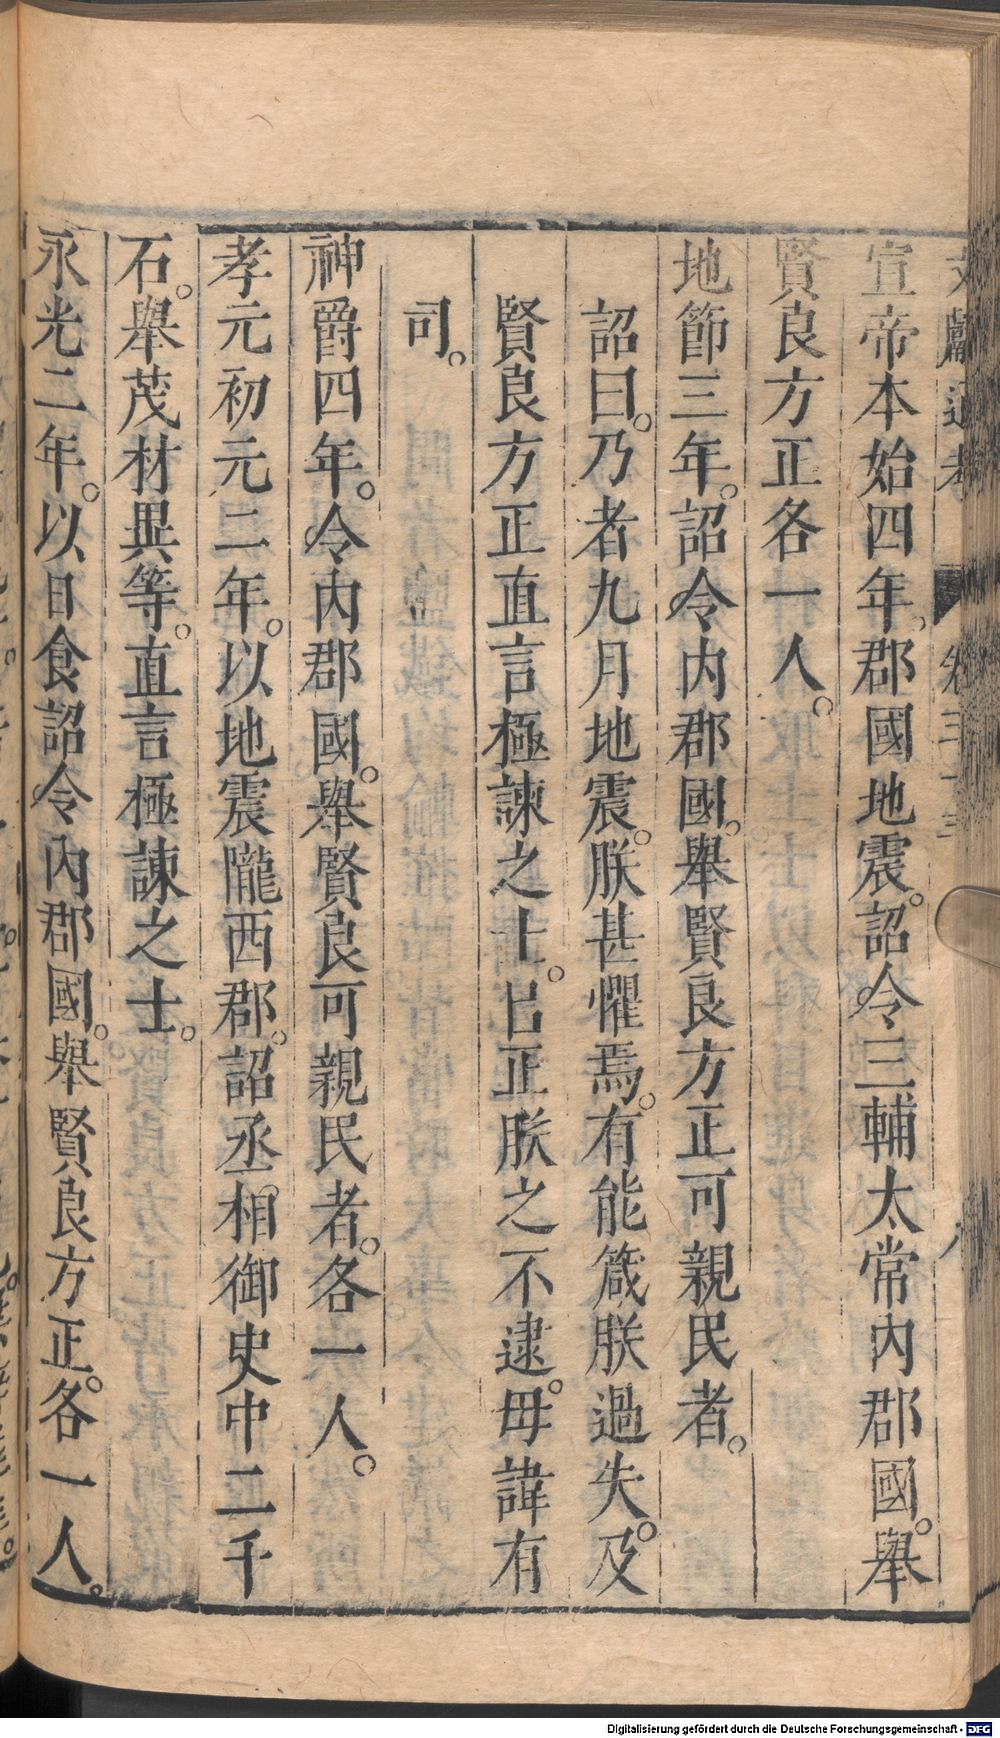 文獻通考 卷三十三 八
宣帝本始四年郡國地震。詔令三輔太常內郡國。舉
賢良方正各一人。
地節三年。詔令內郡國。舉賢良方正可親民者。
詔曰。乃者九月地震。朕甚懼焉。有能箴朕過失。及
賢良方正直言極諫之士。㠯正朕之不逮。毋諱有
司。
神爵四年。令內郡國。舉賢良可親民者。各一人。
孝元初元二年。以地震隴西郡。詔丞相御史中二千
石。舉茂材異等。直言極諫之士。
永光二年。以日食詔令內郡國。舉賢良方正。各一人。
Digitalisierung gefördert durch die Deutsche Forschungsgemeinschaft - DFG